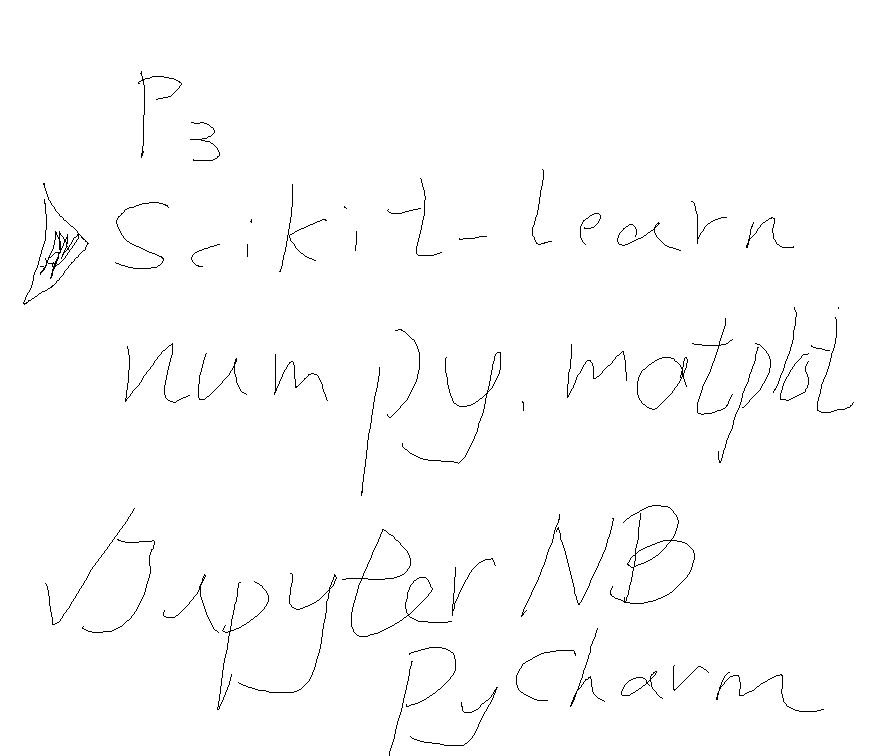 P3
Scikit-learn
numpy. matplot
Jupyter NB
PyCharm